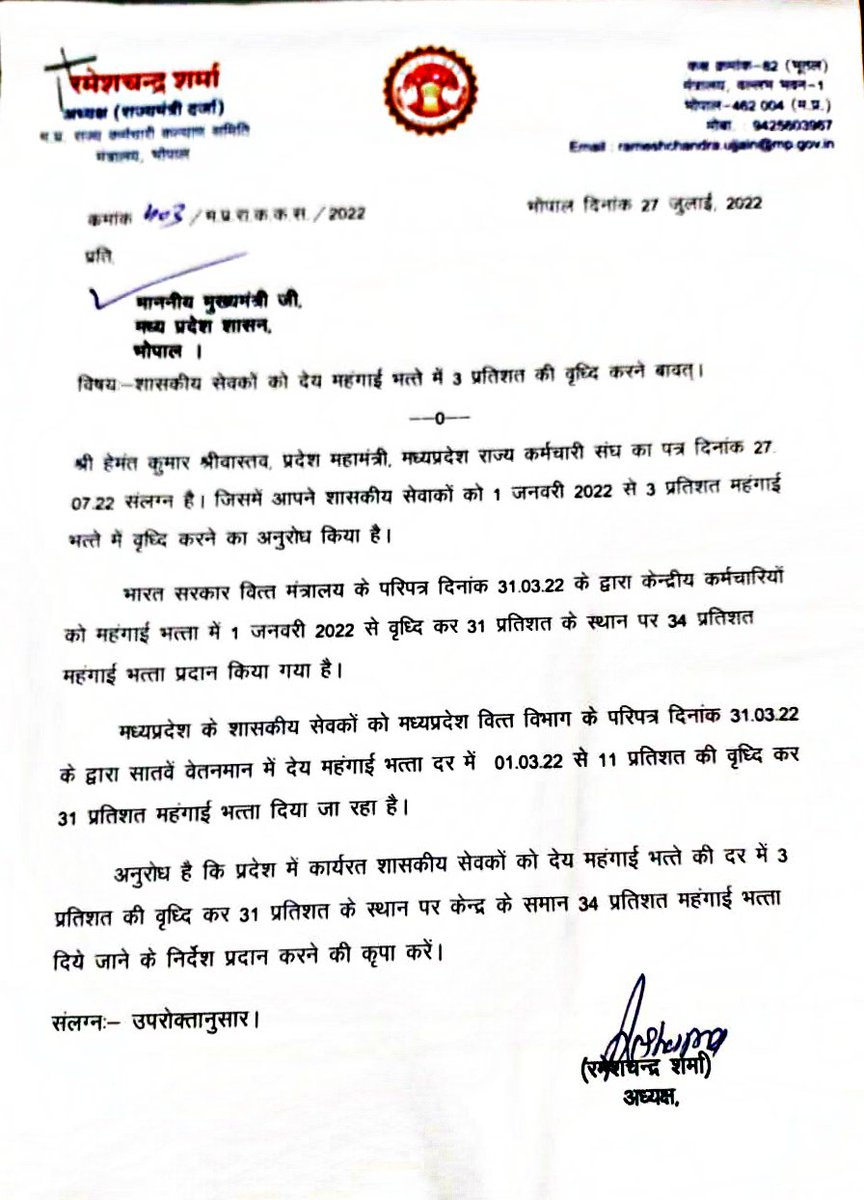 रमेशचन्द्र शर्मा
अध्यक्ष (राज्यमंत्री दर्जा)
म.प्र. राज्य कर्मचारी कल्याण समिति
मंत्रालय, भोपाल
कक्ष क्रमांक-82 (भूतल)
मंत्रालय, वल्लभ भवन-1
भोपाल-462 004 (म.प्र.)
मोबा. : 9425603967
Email : rameshchandra.ujjain@mp.gov.in
कमांक 403 / म.प्र.रा.क.क.स. / 2022
भोपाल दिनांक 27 जुलाई, 2022
प्रति,
माननीय मुख्यमंत्री जी,
मध्य प्रदेश शासन,
भोपाल ।
विषयः–शासकीय सेवकों को देय महंगाई भत्ते में 3 प्रतिशत की वृध्दि करने बावत्।
––0––
श्री हेमंत कुमार श्रीवास्तव, प्रदेश महामंत्री, मध्यप्रदेश राज्य कर्मचारी संघ का पत्र दिनांक 27.
07.22 संलग्न है। जिसमें आपने शासकीय सेवाकों को 1 जनवरी 2022 से 3 प्रतिशत महंगाई
भत्ते में वृध्दि करने का अनुरोध किया है।
भारत सरकार वित्त मंत्रालय के परिपत्र दिनांक 31.03.22 के द्वारा केन्द्रीय कर्मचारियों
को महंगाई भत्ता में 1 जनवरी 2022 से वृध्दि कर 31 प्रतिशत के स्थान पर 34 प्रतिशत
महंगाई भत्ता प्रदान किया गया है।
मध्यप्रदेश के शासकीय सेवकों को मध्यप्रदेश वित्त विभाग के परिपत्र दिनांक 31.03.22
के द्वारा सातवें वेतनमान में देय महंगाई भत्ता दर में 01.03.22 से 11 प्रतिशत की वृध्दि कर
31 प्रतिशत महंगाई भत्ता दिया जा रहा है।
अनुरोध है कि प्रदेश में कार्यरत शासकीय सेवकों को देय महंगाई भत्ते की दर में 3
प्रतिशत की वृध्दि कर 31 प्रतिशत के स्थान पर केन्द्र के समान 34 प्रतिशत महंगाई भत्ता
दिये जाने के निर्देश प्रदान करने की कृपा करें।
संलग्नः– उपरोक्तानुसार।
(रमेशचन्द्र शर्मा)
अध्यक्ष,